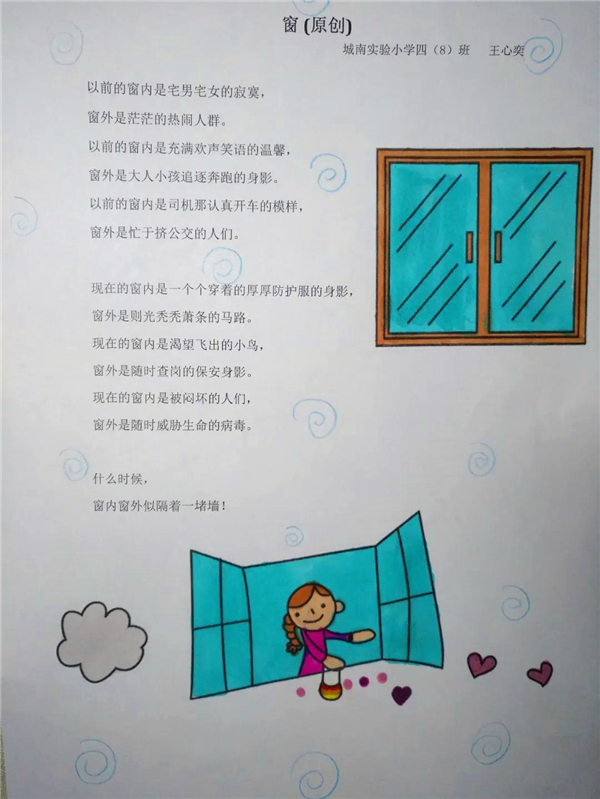 窗(原创)
城南实验小学四（8）班 王心奕
以前的窗内是宅男宅女的寂寞，
窗外是茫茫的热闹人群。
以前的窗内是充满欢声笑语的温馨，
窗外是大人小孩追逐奔跑的身影。
以前的窗内是司机那认真开车的模样，
窗外是忙于挤公交的人们。
现在的窗内是一个个穿着的厚厚防护服的身影，
窗外是则光秃秃萧条的马路。
现在的窗内是渴望飞出的小鸟，
窗外是随时查岗的保安身影。
现在的窗内是被闷坏的人们，
窗外是随时威胁生命的病毒。
什么时候，
窗内窗外似隔着一堵墙！